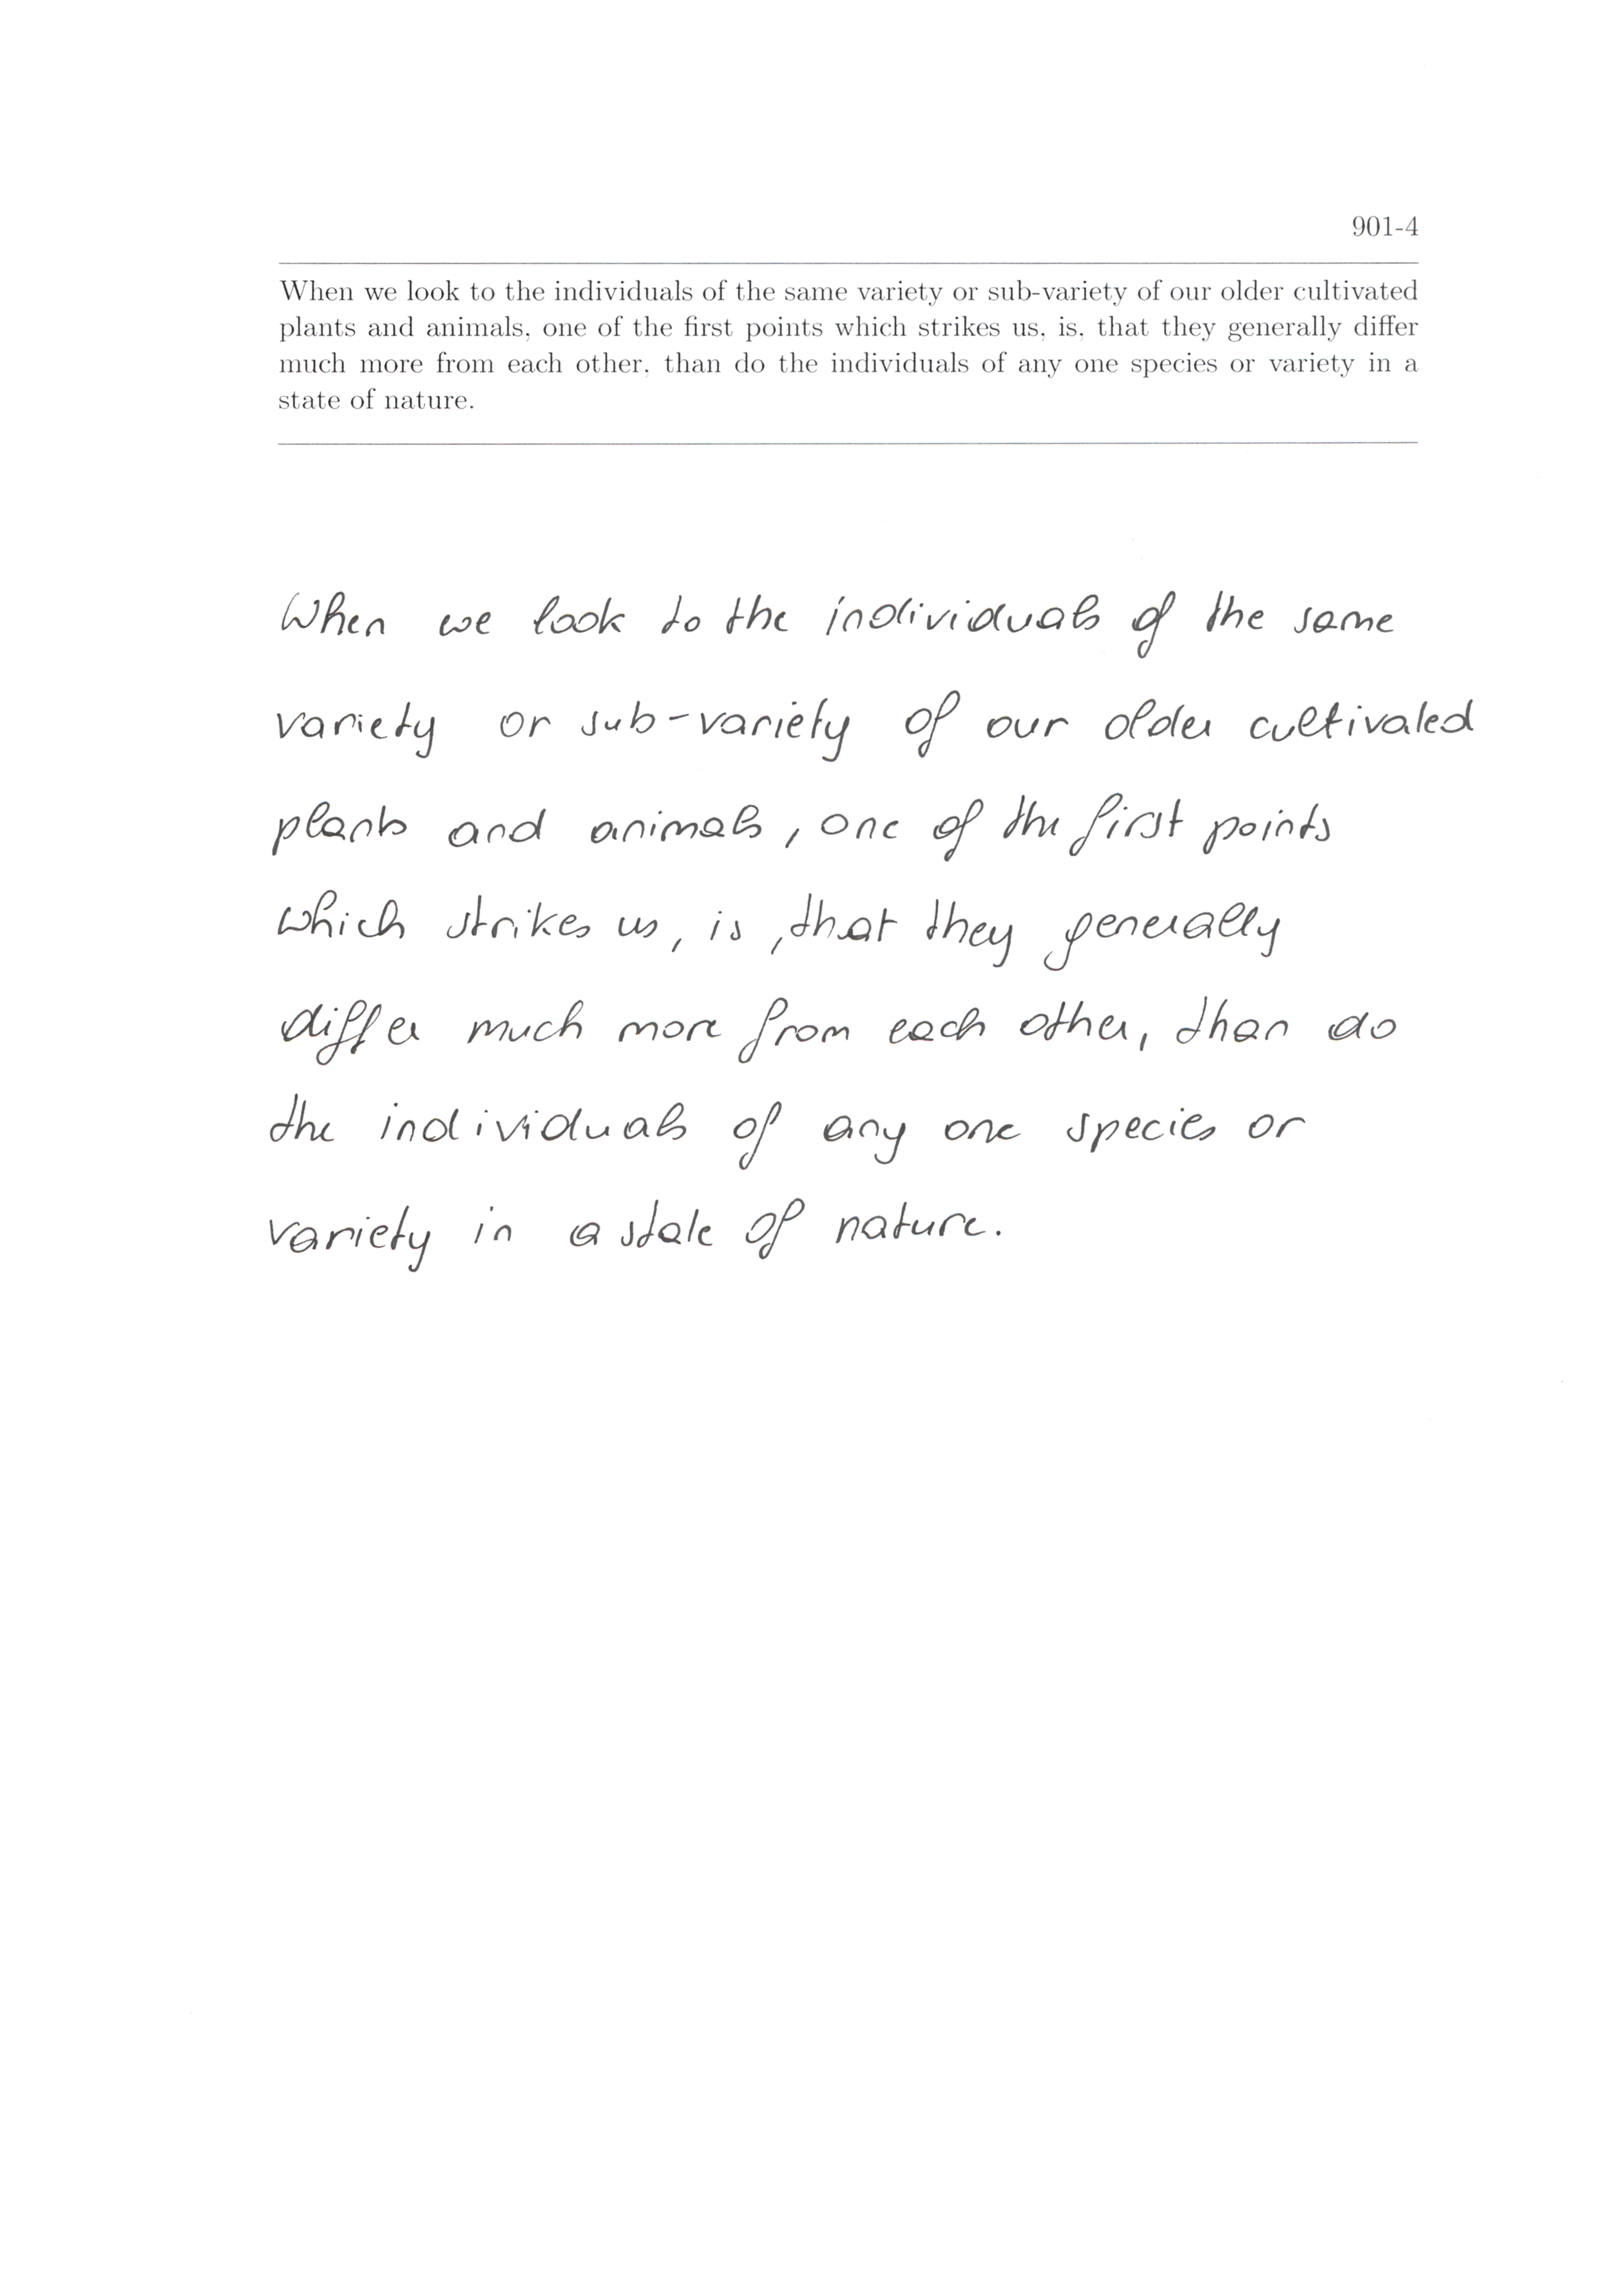 901-4
When we look to the individuals of the same variety or sub-variety of our older cultivated
plants and animals, one of the first points which strikes us, is, that they generally differ
much more from each other, than do the individuals of any one species or variety in a
state of nature.
When we look to the individuals of the same
variety or sub-variety of our older cultivated
plants and animals, one of the first points
which strikes us, is, that they generally
differ much more from each other, than do
the individuals of any one species or
variety in a state of nature.